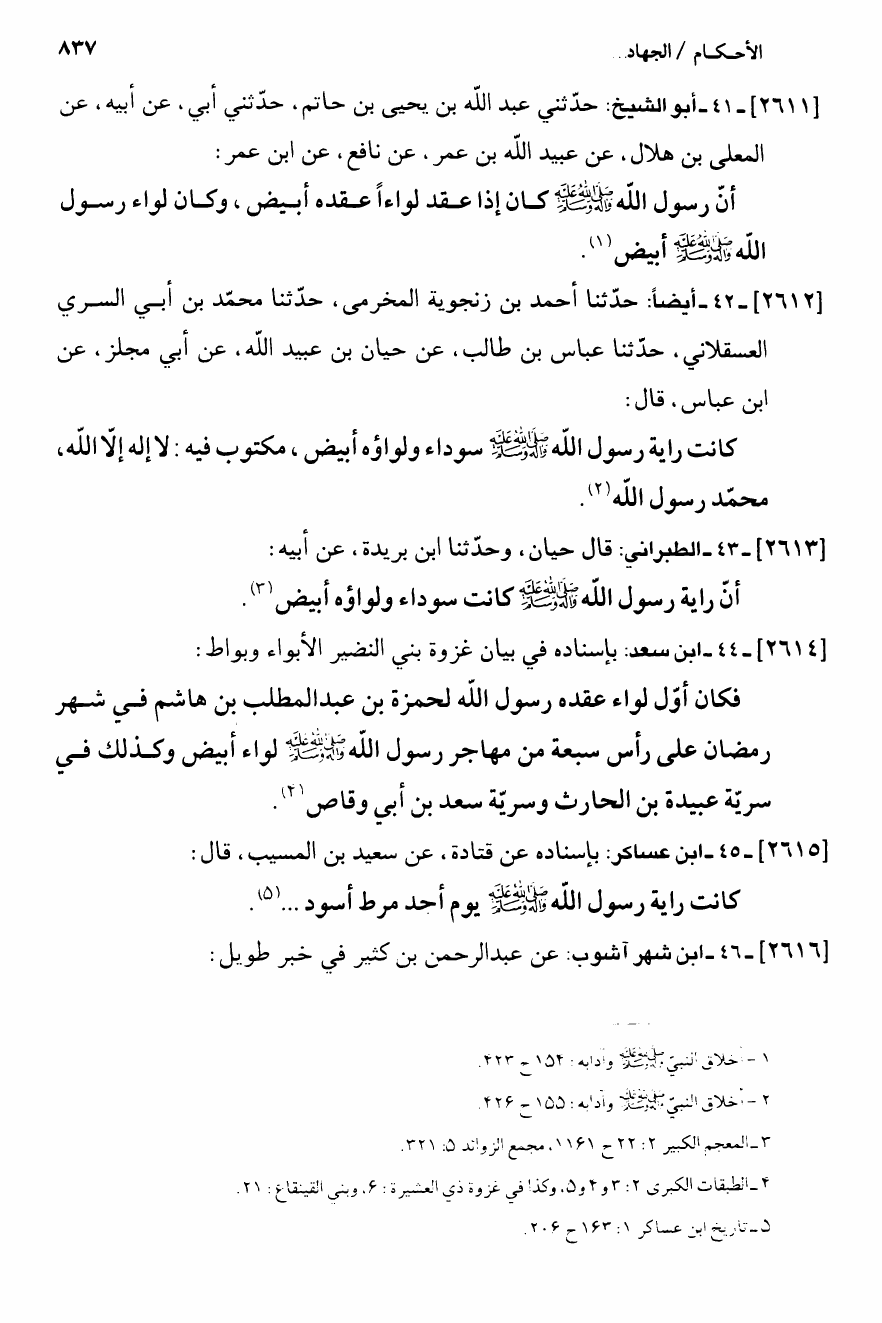 الأحـكـام / الجهاد... ٨٣٧
[٢٦١١] ـ ٤١ ـ أبو الشيخ: حدّثني عبد اللّه بن يحيى بن حاتم، حدّثني أبي، عن أبيه، عن
المعلى بن هلال، عن عبيد اللّه بن عمر، عن نافع، عن ابن عمر:
أنّ رسول اللّه صلى الله عليه وآله وسلم كـان إذا عـقد لواءاً عـقده أبـيض، وكـان لواء رسـول
اللّه صلى الله عليه وآله وسلم أبيض(١).
[٢٦١٢] ـ ٤٢ ـ أيضاً: حدّثنا أحمد بن زنجوية المخرمى، حدّثنا محمّد بن أبـي السـري
العسقلاني، حدّثنا عباس بن طالب، عن حيان بن عبيد اللّه، عن أبي مجلز، عن
ابن عباس، قال:
كانت راية رسول اللّه صلى الله عليه وآله وسلم سوداء ولواؤه أبيض، مكتوب فيه: لا إله إلّا اللّه،
محمّد رسول اللّه(٢).
[٢٦١٣] ـ ٤٣ ـ الطبراني: قال حيان، وحدّثنا ابن بريدة، عن أبيه:
أنّ راية رسول اللّه صلى الله عليه وآله وسلم كانت سوداء ولواؤه أبيض(٣).
[٢٦١٤] ـ ٤٤ ـ ابن سعد: بإسناده في بيان غزوة بني النضير الأبواء وبواط:
فكان أوّل لواء عقده رسول اللّه لحمزة بن عبدالمطلب بن هاشم فـي شـهر
رمضان على رأس سبعة من مهاجر رسول اللّه صلى الله عليه وآله وسلم لواء أبيض وكـذلك فـي
سريّة عبيدة بن الحارث وسريّة سعد بن أبي وقاص(۴).
[٢٦١٥] ـ ٤٥ ـ ابن عساكر: بإسناده عن قتادة، عن سعيد بن المسيب، قال:
كانت راية رسول اللّه صلى الله عليه وآله وسلم يوم أحد مرط أسود ...(۵).
[٢٦١٦] ـ ٤٦ ـ ابن شهر آشوب: عن عبدالرحمن بن كثير في خبر طويل:
١ - أخلاق النبيّ صلى الله عليه وآله وسلم وآدابه: ١۵۴ ح ۴٢٣.
٢ - أخلاق النبيّ صلى الله عليه وآله وسلم وآدابه: ١۵۵ ح ۴٢۶.
٣ ـ المعجم الكبير ٢: ٢٢ ح ١١۶١، مجمع الزوائد ۵: ٣٢١.
۴ ـ الطبقات الكبرى ٢: ٣ و ۴ و ۵، وكذا في غزوة ذي العشيرة: ۶، وبني القينقاع: ٢١.
۵ ـ تاريخ ابن عساكر ١: ١۶٣ ح ٢٠۶.